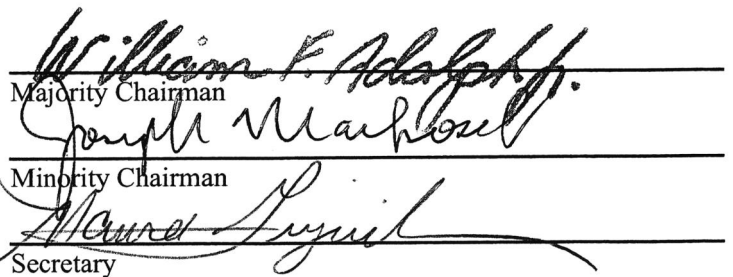 William F. Adolph Jr.
Majority Chairman
Joseph Markosek
Minority Chairman
Maura
Secretary